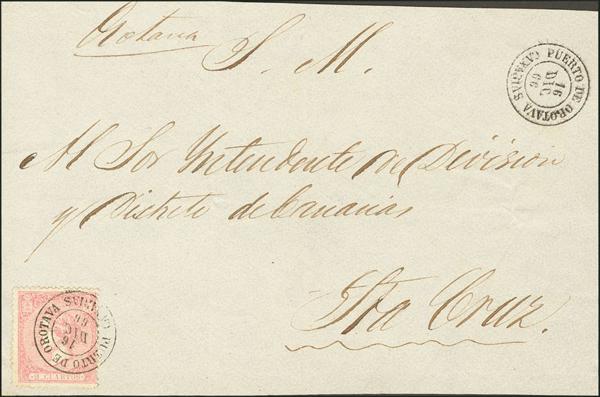 Orotava
S. M.
PUERTO DE OROTAVA CANARIAS
16
DIC
66
Al Sor Yntendente de Division
y Distrito de Canarias
Sta Cruz.
PUERTO DE OROTAVA CANARIAS
16
DIC
66
CUARTOS